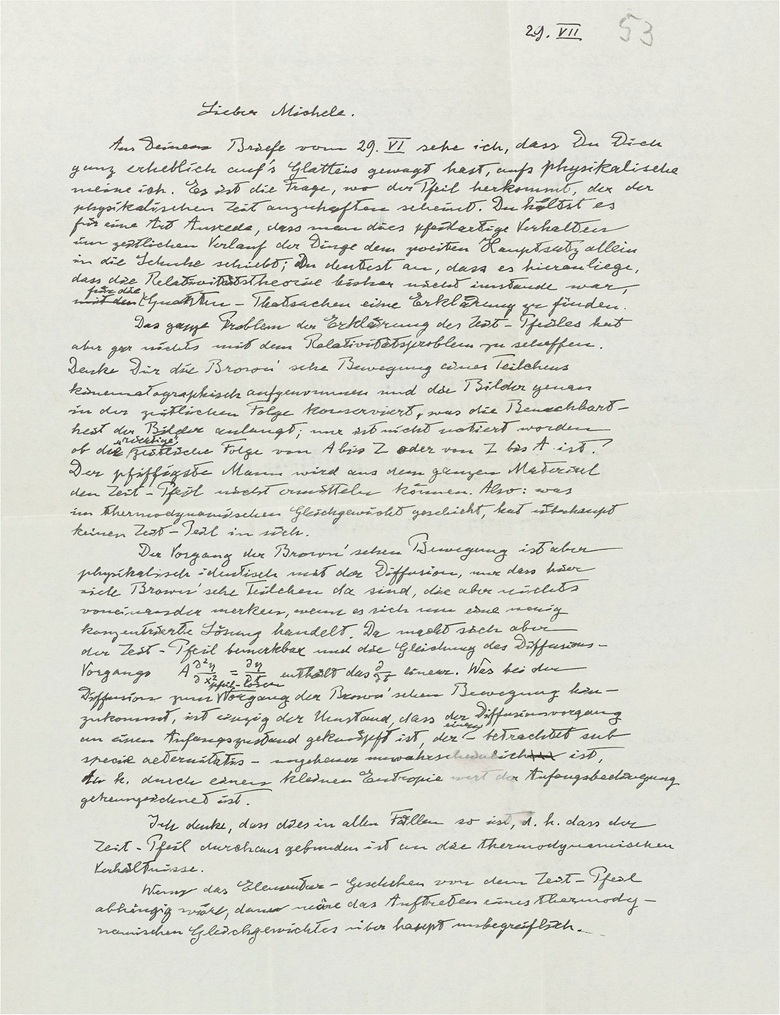 29. VII 53
Lieber Michele.
Aus Deinem Briefe vom 29. VI sehe ich, dass Du Dich
ganz erheblich auf's Glatteis gewagt hast, aufs physikalische
meine ich. Es ist die Frage, wo der Pfeil herkommt, der der
physikalischen Zeit anzuhaften scheint. Du hältst es
für eine Art Ausrede, dass man dies pfeilartige Verhalten
im zeitlichen Verlauf der Dinge dem zweiten Hauptsatz allein
in die Schuhe schiebt; Du deutest an, dass es hieran liege,
dass die Relativitätstheorie bisher nicht imstande war,
für die
mit den Quanten-Thatsachen eine Erklärung zu finden.
Das ganze Problem der Erklärung des Zeit-Pfeiles hat
aber gar nichts mit dem Relativitätsproblem zu schaffen.
Denke Dir die Brown'sche Bewegung eines Teilchens
kinematographisch aufgenommen und die Bilder genau
in der zeitlichen Folge konserviert, was die Benachbart-
heit der Bilder anlangt; nur ist nicht notiert worden
richtige
ob die zeitliche Folge von A bis Z oder von Z bis A ist.
Der pfiffigste Mann wird aus dem ganzen Material
den Zeit-Pfeil nicht ermitteln können. Also: was
im thermodynamischen Gleichgewicht geschieht, hat überhaupt
keinen Zeit-Pfeil in sich.
Der Vorgang der Brown'schen Bewegung ist aber
physikalisch identisch mit der Diffusion, nur dass hier
viele Brown'sche Teilchen da sind, die aber nichts
voneinander merken, wenn es sich um eine wenig
konzentrierte Lösung handelt. Da macht sich aber
der Zeit-Pfeil bemerkbar und die Gleichung des Diffusions-
Vorgangs A ∂²η/∂x² = ∂η/∂t enthält das ∂/∂t linear. Was bei der
pfeil-losen
Diffusion zum Vorgang der Brown'schen Bewegung hin-
zukommt, ist einzig der Umstand, dass der Diffusionsvorgang
an einen Anfangszustand geknüpft ist, der - betrachtet sub
specie aeternitatis - ungeheuer unwahrscheinlich ist,
d. h. durch einen kleinen Entropie-wert der Anfangsbedingung
gekennzeichnet ist.
Ich denke, dass dies in allen Fällen so ist, d. h. dass der
Zeit-Pfeil durchaus gebunden ist an die thermodynamischen
Verhältnisse.
Wenn das Elementar-Geschehen von dem Zeit-Pfeil
abhängig wäre, dann wäre das Auftreten eines thermody-
namischen Gleichgewichtes überhaupt unbegreiflich.